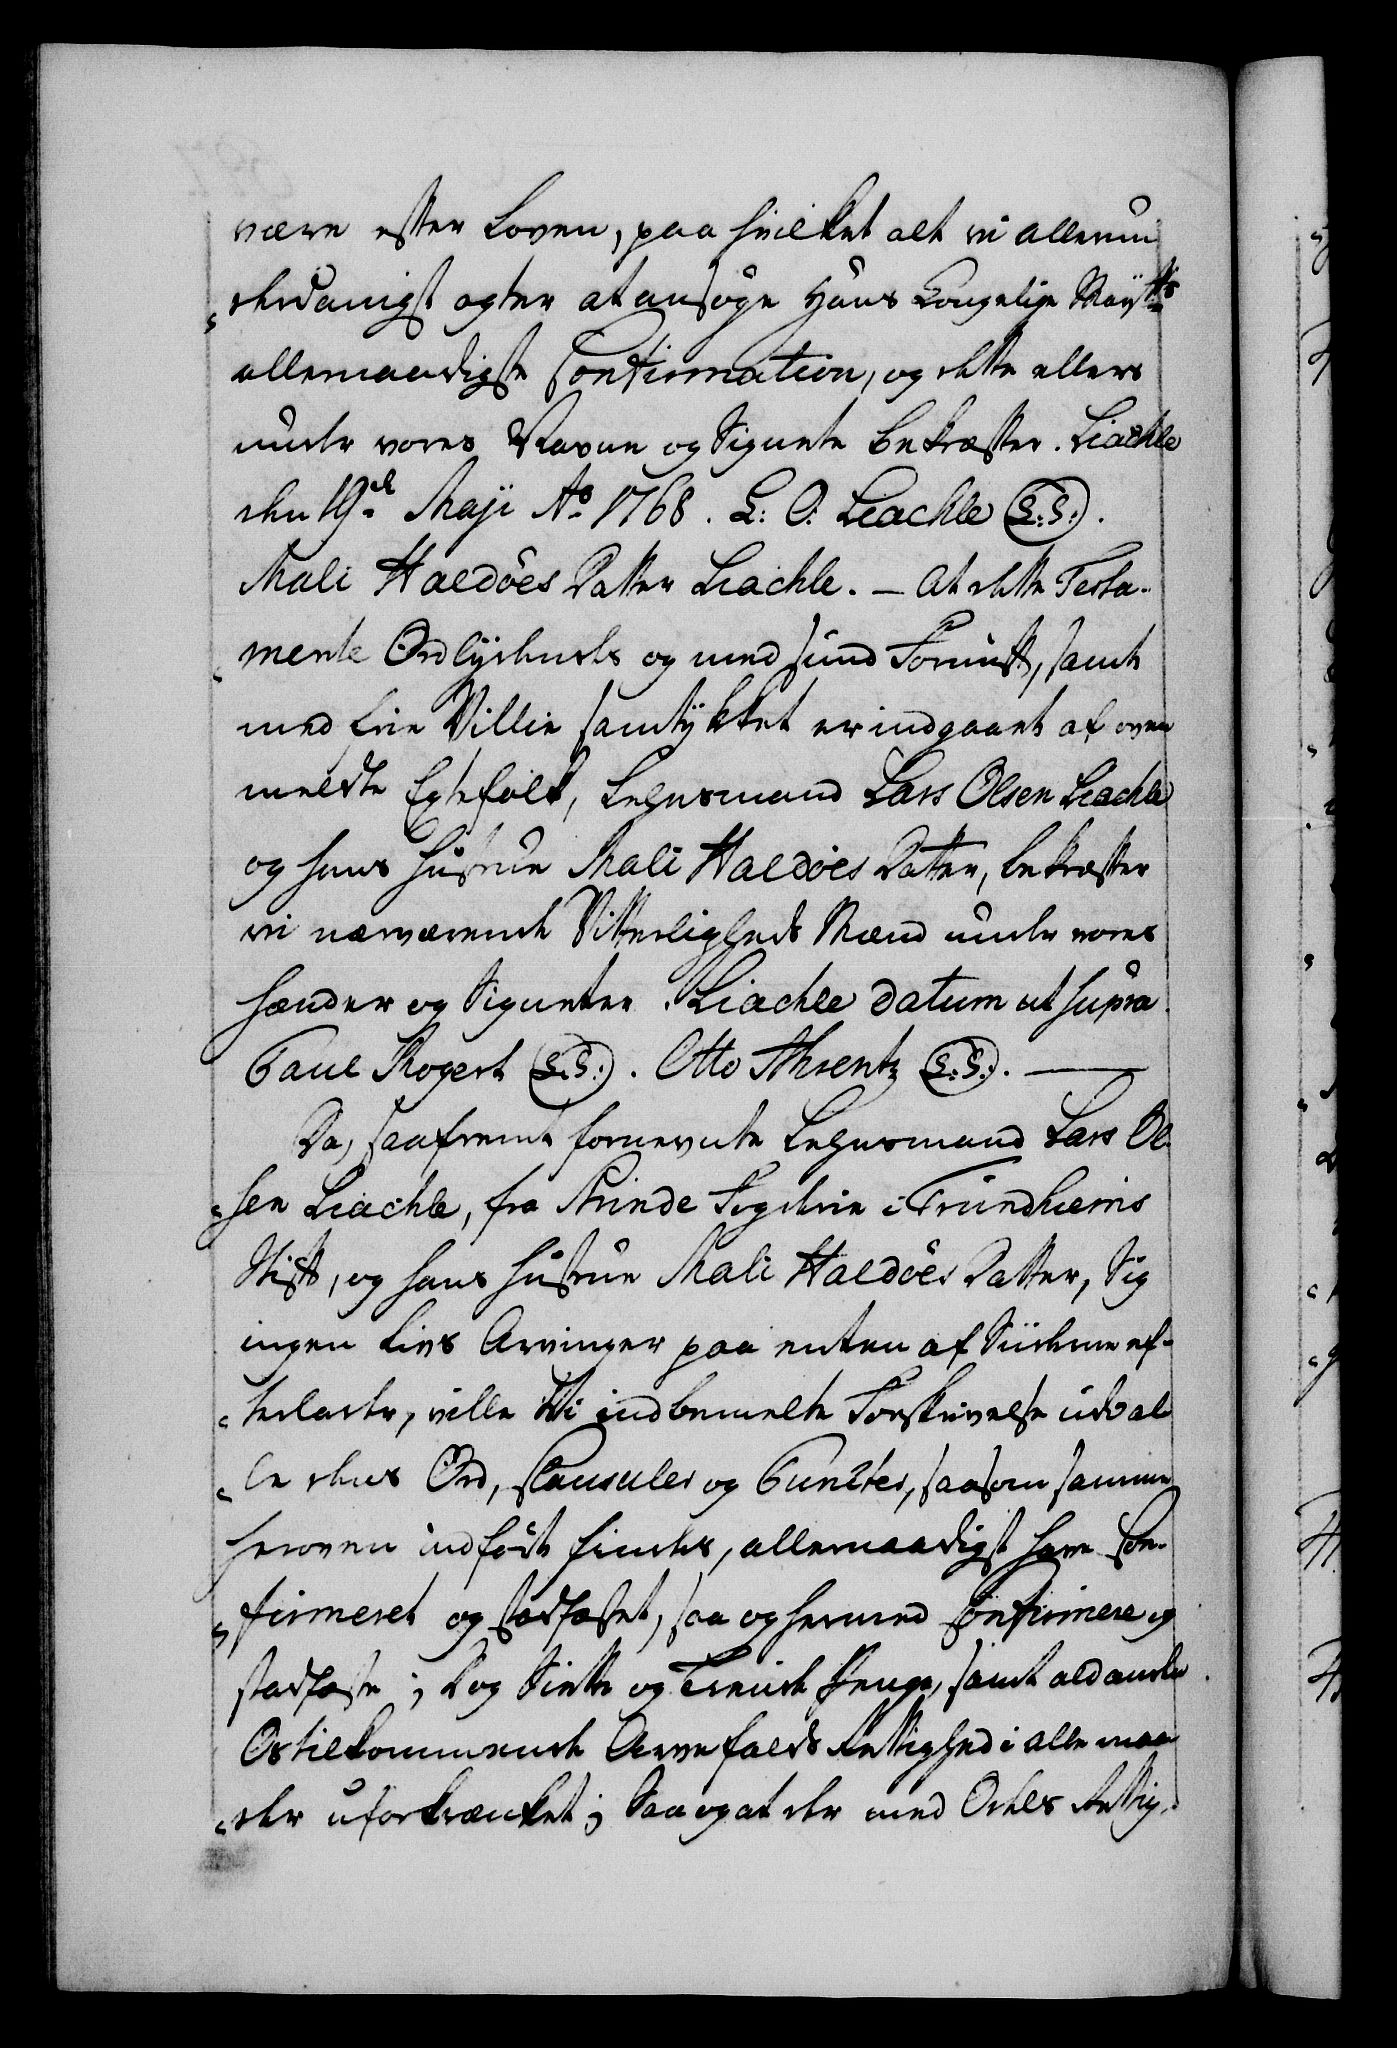 være efter Loven, paa hvilket alt vi allerun
derdanigst agter at ansøge Hans Kongelige Maytts
allernaadigste Confirmation, og dette ellers
under vores Navne og Signete bekræfter. Liachle
den 19de Maji Ao 1768. L: O: Liachle (L:S:).
Mali Haldöes Datter Liachle. — At dette Testa-
mente Ordlydendes og med sund Fornuft, samt
med frie Villie samtykket er indgaaet af oven
meldte Egtefolk, Lehnsmand Lars Olsen Liachle
og hans Hustrue Mali Haldöes Datter, bekræfter
vi nærværende Vitterligheds Mænd under vores
Hænder og Signeter. Liachle datum ut supra.
Paul Rogert (L:S:). Otto Ahrentz (L:S:). —
Da, saafremt fornevnte Lehnsmand Lars Ol-
sen Liachle, fra Rinde Fogderie i Trundhiems
Stift, og hans Hustrue Mali Haldöes Datter, Sig
ingen Livs Arvinger paa enten af Siiderne ef-
terlader, ville Wi indbemelte Forskrivelse udi al
le dens Ord, Clausuler og Puncter, saasom samme
heroven indført findes, allernaadigst have Con-
firmeret og stadfæstet, saa og hermed Confirmere og
stadfæste; Dog Siette og Tiende Penge, samt ald anden
Os tilkommende Arvefalds Rettighed i alle maa
der uforkrænket; Saa og at der med Odels Rettig-